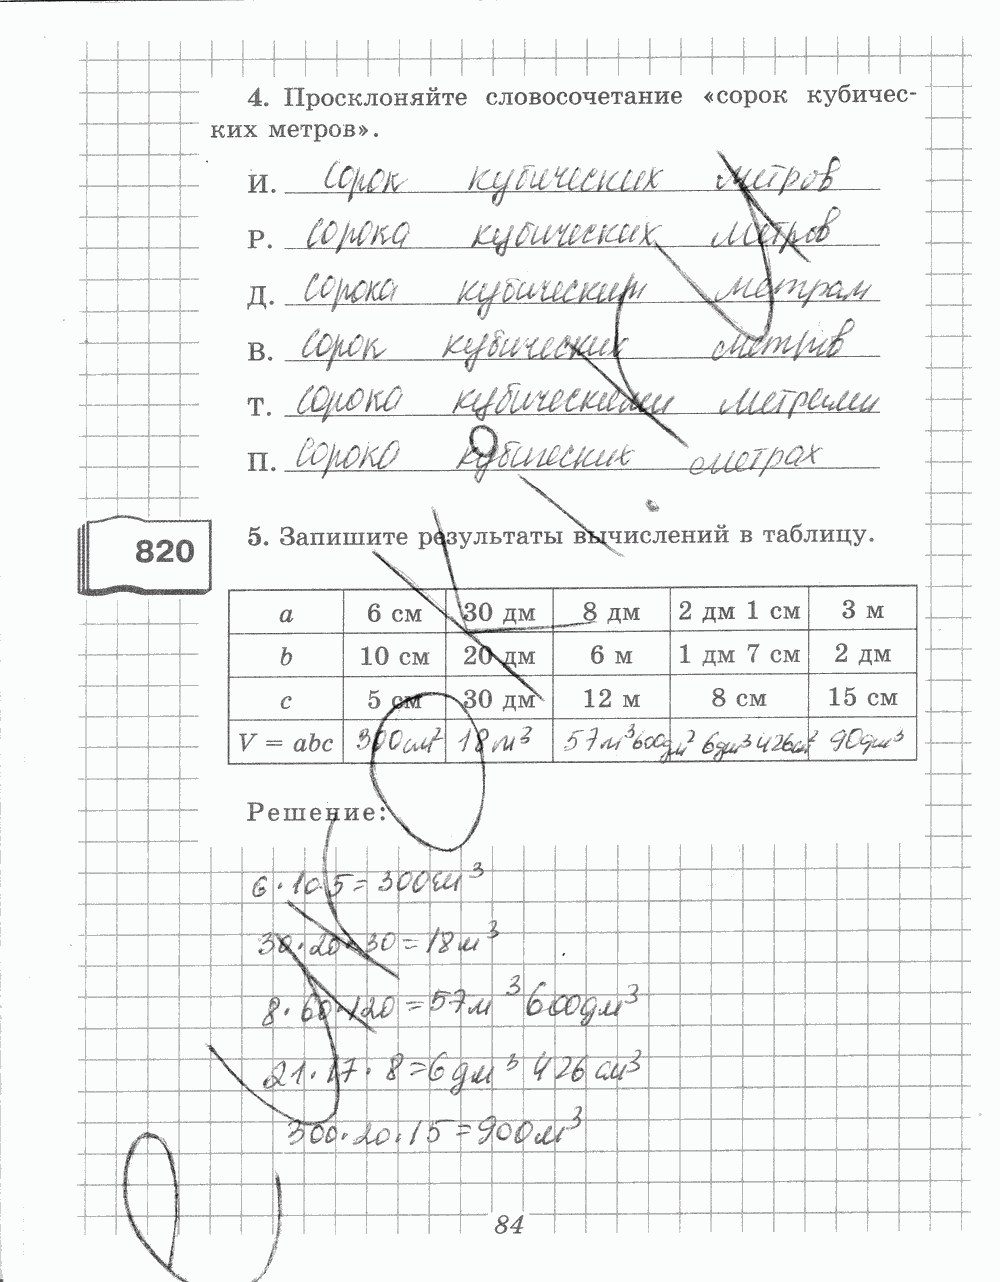 4. Просклоняйте словосочетание «сорок кубичес-
ких метров».
И. Сорок кубических метров
Р. Сорока кубических метров
Д. Сорока кубическим метрам
В. Сорок кубических метров
Т. Сорока кубическими метрами
П. Сорока кубических метрах
820
5. Запишите результаты вычислений в таблицу.
a 6 см 30 дм 8 дм 2 дм 1 см 3 м
b 10 см 20 дм 6 м 1 дм 7 см 2 дм
c 5 см 30 дм 12 м 8 см 15 см
V = abc 300 см² 18 м³ 57 м³ 600 дм² 6 дм³ 426 см² 90 дм³
Решение:
6·10·5=300см³
30·20·30=18м³
8·60·120=57м³ 600дм³
21·17·8=6дм³ 426см³
300·20·15=900м³
84